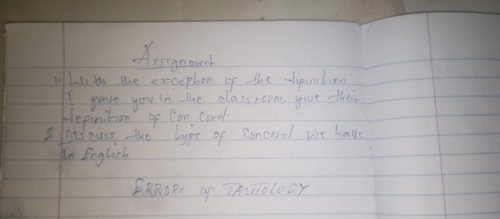 Assignment
1. With the exception of the definition
I gave you in the classroom, give their
definition of Concord.
2 Discuss the type of Concord we have
in English
ERRORS of TAUTOLOGY